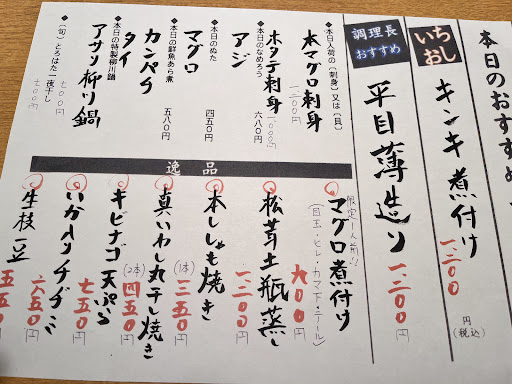 本日のおすすめ
いちおし
キンキ煮付け
一、二00円(税込)
調理長おすすめ
平目薄造り
一、二00円
◆本日入荷の〔刺身〕又は〔貝〕
本マグロ刺身
一二00円
ホタテ刺身
一000円
◆本日のなめろう
アジ
六八0円
◆本日のぬた
マグロ
四五0円
◆本日の鮮魚あら煮
カンパチ
タイ
五八0円
◆本日の特製柳川鍋
アサリ柳川鍋
七00円
◆〔旬〕とろはた一夜干し
七00円
逸品
マグロ煮付け
限定一人前!!
(目玉・ヒレ・カマ下・テール)
九00円
松茸土瓶蒸し
一、二00円
本ししゃも焼き
(1本)三五0円
真いわし丸干し焼き
(2本)四五0円
キビナゴ天ぷら
七五0円
いか入りチヂミ
六五0円
生枝豆
五五0